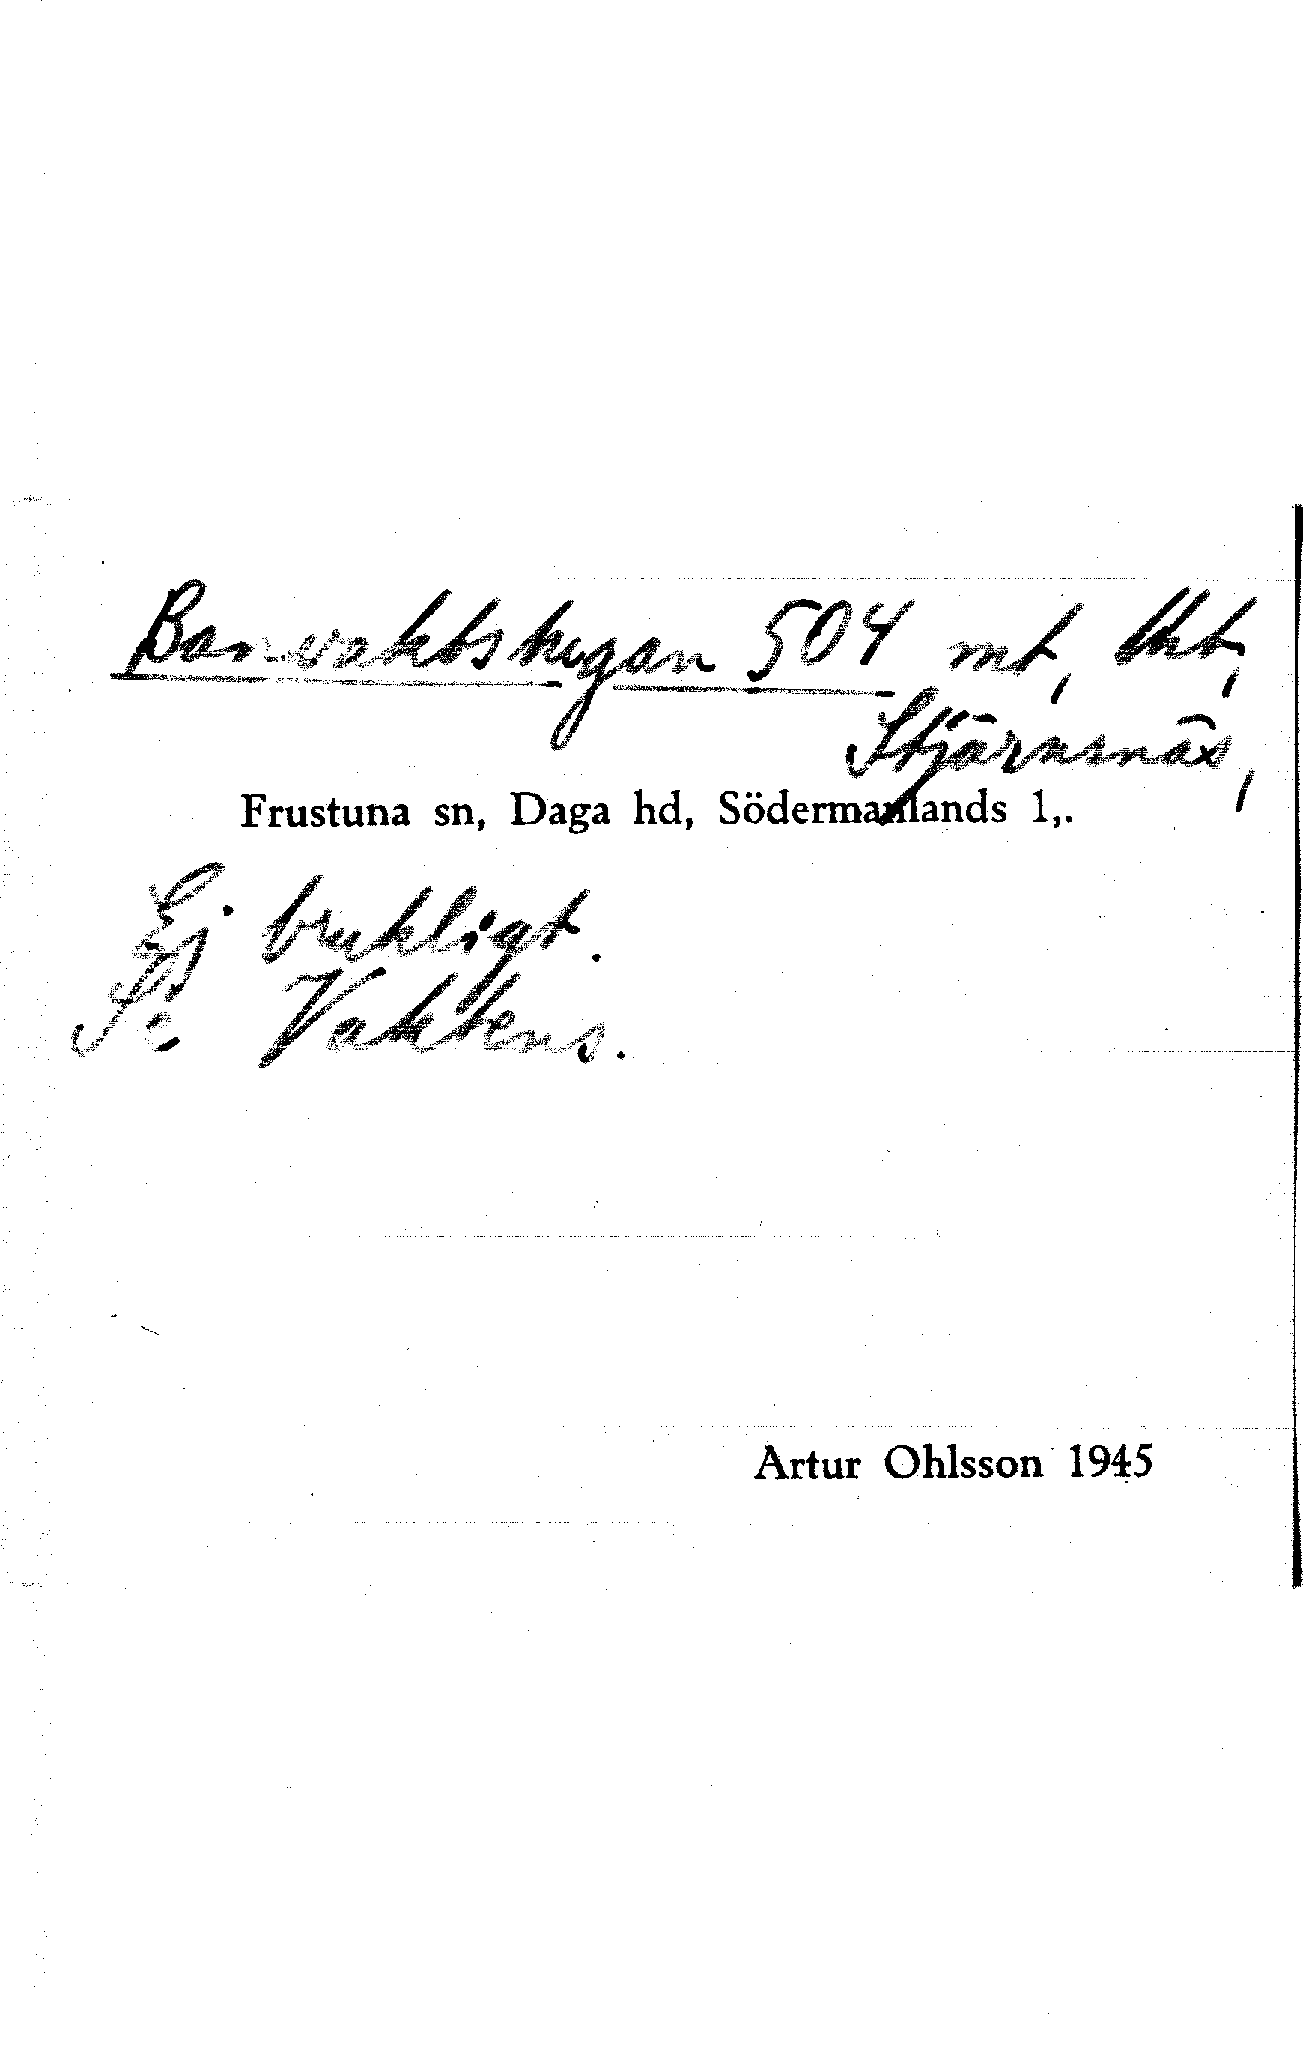 Banvaktstugan 504 mt, lht,
Stjärnsnäs,
Frustuna sn, Daga hd, Södermanlands l,.
Ej brukligt.
Se Vaktens.
Artur Ohlsson 1945